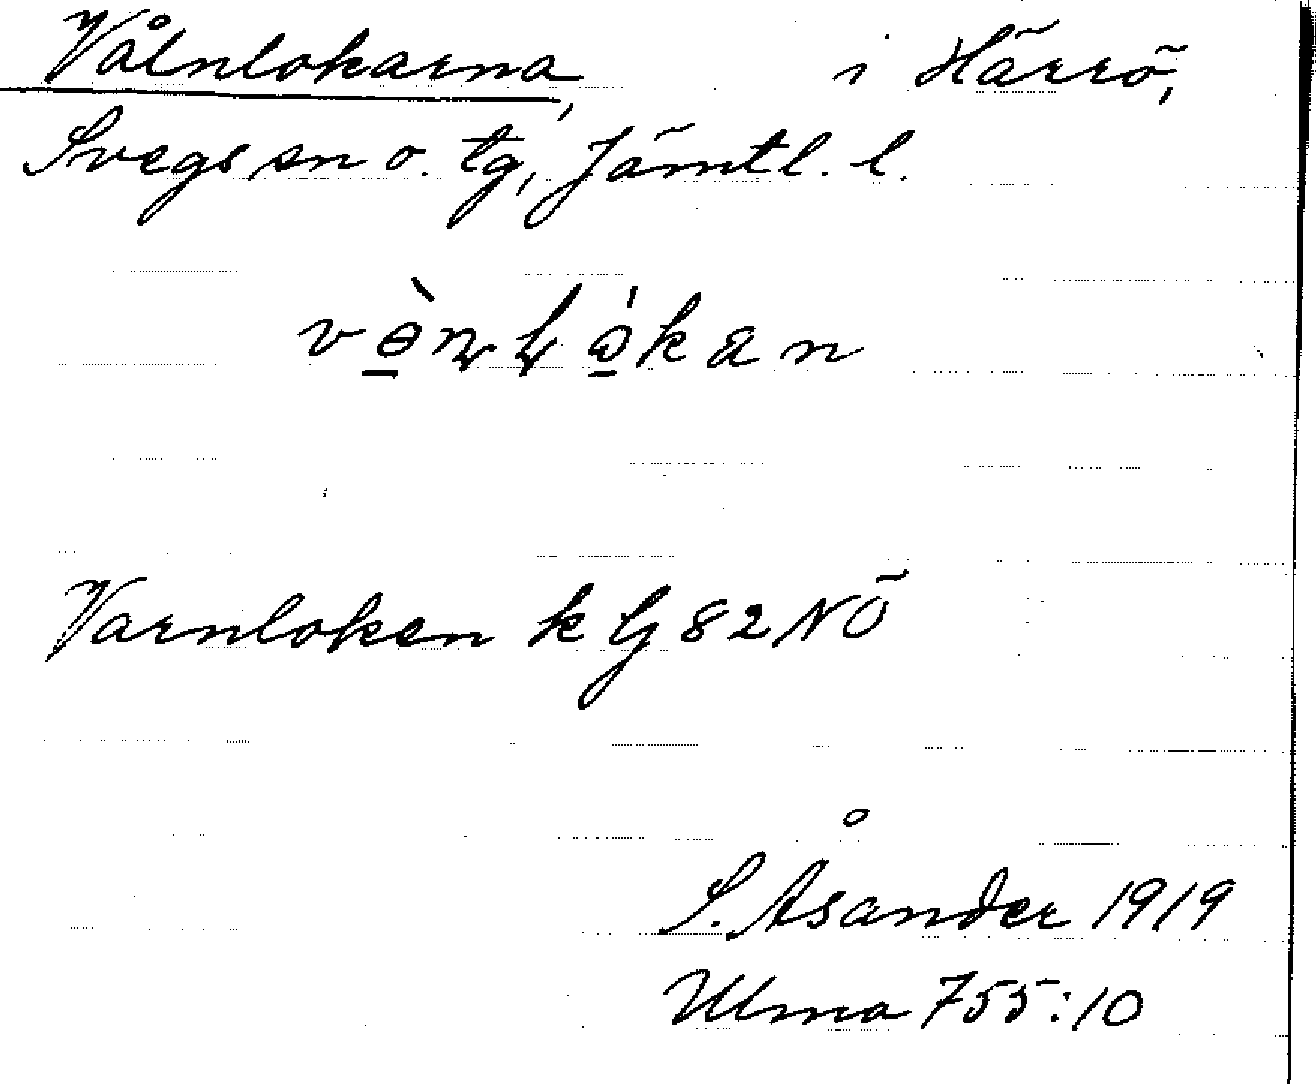 Vålnlokarna, i Härrö,
Svegs sn o. tg, Jämtl. l.
Varnloken k G 82 NÖ
S. Åsander 1919
Ulma 755:10